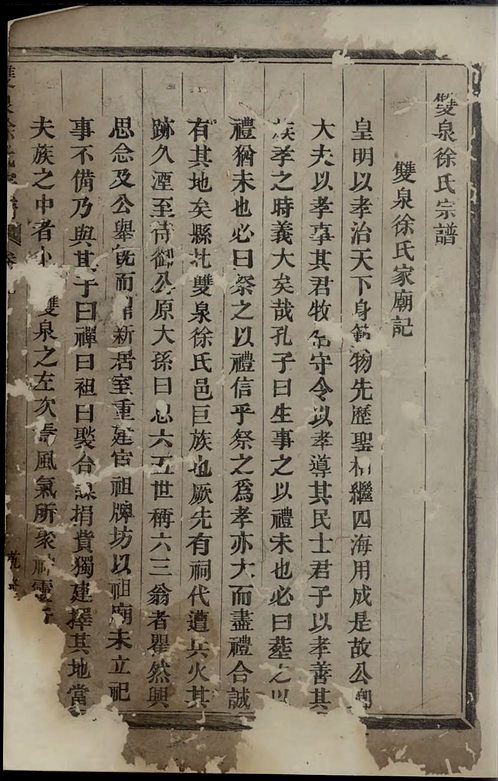 雙泉徐氏宗譜
雙泉徐氏家廟記
皇明以孝治天下身範物先歷聖相繼四海用成是故公卿
大夫以孝事其君牧守令以孝導其民士君子以孝善其
族孝之時義大矣哉孔子曰生事之以禮未也必曰葬之以
禮猶未也必曰祭之以禮信乎祭之爲孝亦大而盡禮合誠
有其地矣縣北雙泉徐氏邑巨族也厥先有祠代遭兵火其
跡久湮至侍御公原大孫曰忍六五世稱六三翁者瞿然興
思念及公舉旣而新居室重建官祖牌坊以祖廟未立祀
事不備乃與其子曰禪曰祖曰襲台謀捐貲獨建擇其地當
夫族之中者雙泉之左次風氣所聚